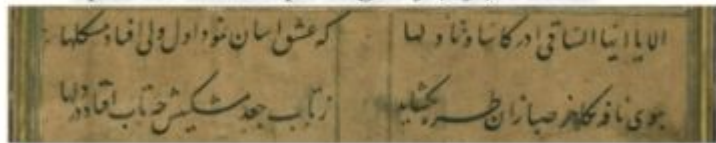 الا یا ایها الساقی ادر کاسا و ناولها که عشق اسان نمود اول ولی افتاد مشکلها
ببوی نافه کاخر صبا زان طره بگشاید ز تاب جعد مشکینش چه تاب افتاد در دلها